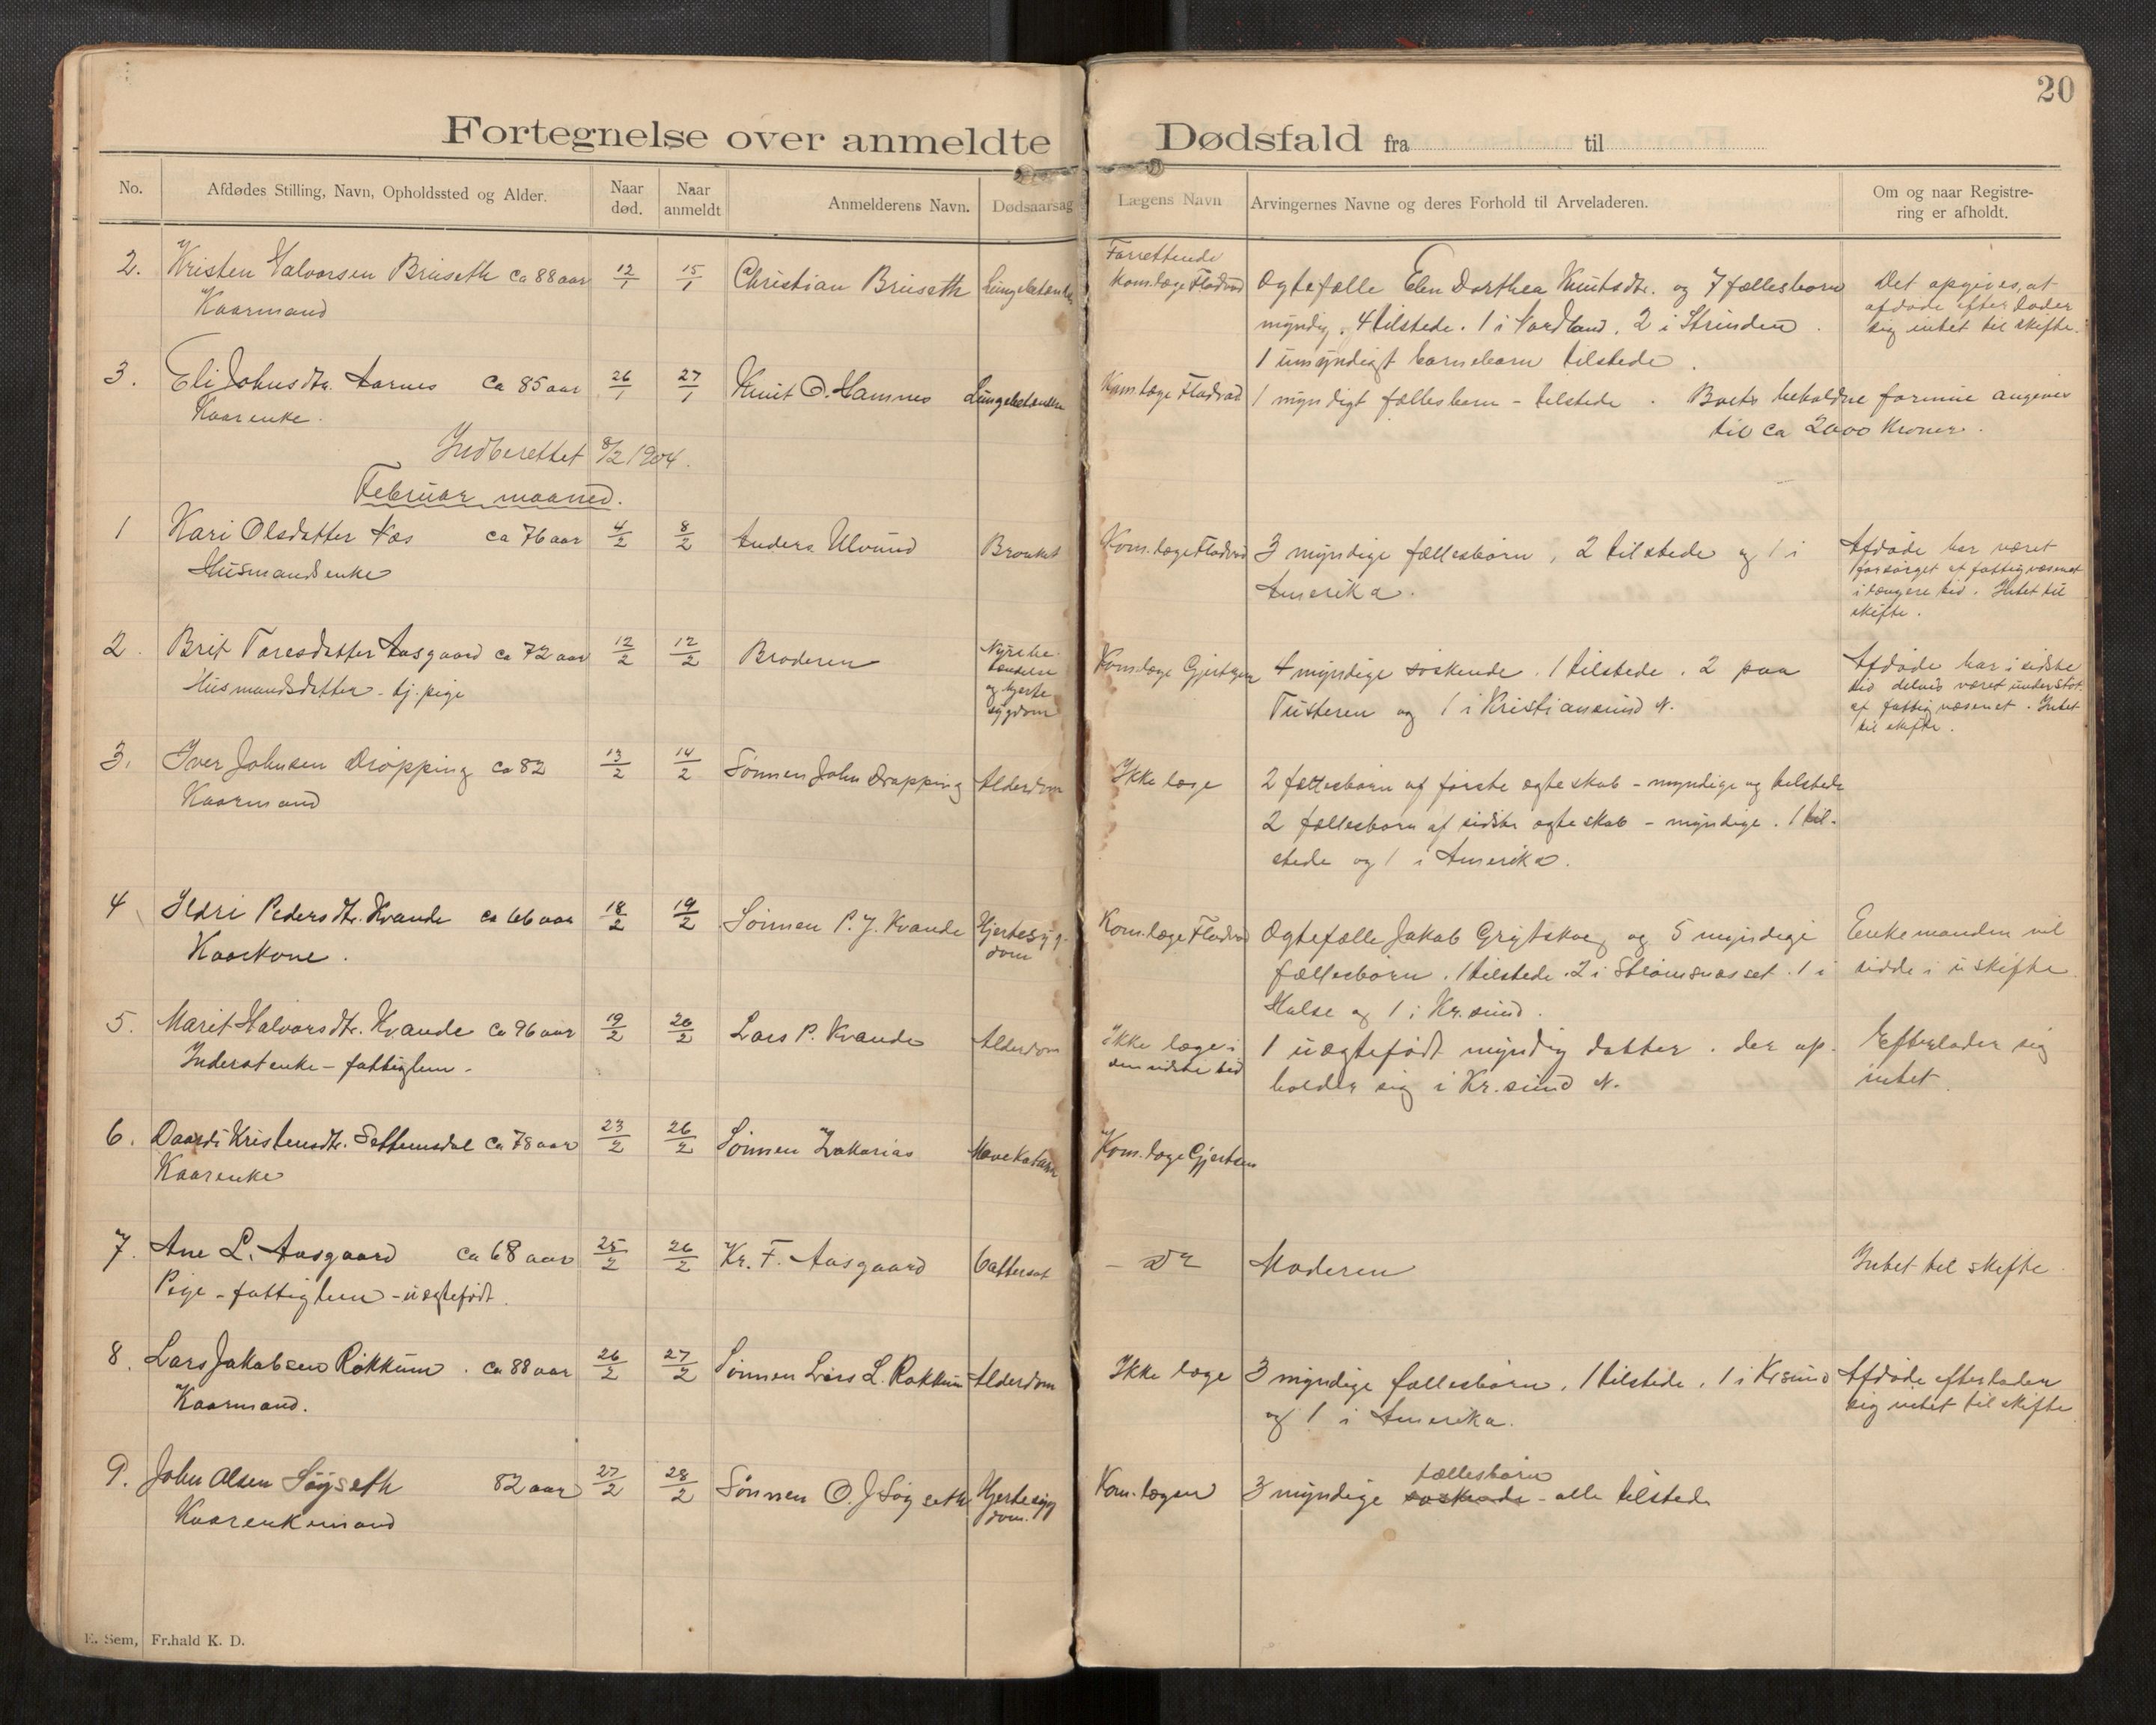 20
Fortegnelse over anmeldte Dødsfald fra til
No. Afdødes Stilling, Navn, Opholdssted og Alder. Naar død. Naar anmeldt Anmelderens Navn. Dødsaarsag Lægens Navn Arvingernes Navne og deres Forhold til Arveladeren. Om og naar Registrering er afholdt.
2. Kristen Halvorsen Bruseth ca 88 aar 12/1 15/1 Christian Bruseth Lungebetændelse Forrettende
Kaarmand
Kom.læge Flodvad Ægtefælle Elen Dorthea Knutsdtr. og 7 fællesbørn
myndig. 4 tilstede. 1 i Nordland. 2 i Strinden.
1 umyndigt barnebarn tilstede.
Det opgives, at
afdøde efterlader
sig intet til skifte.
3. Eli Johnsdtr. Aarnes ca 85 aar 26/1 27/1 Knut O. Hamnes Lungebetændelse
Kaarenke.
Kom.læge Flodvad 1 myndigt fællesbarn - tilstede. Boets beholdne formue angives
til ca 2000 Kroner.
Indberettet 8/2 1904.
Februar maaned.
1 Kari Olsdatter Næs ca 76 aar 4/2 8/2 Anders Ulvund Bronkit
Husmandsenke
Kom.læge Flodvad 3 myndige fællesbørn, 2 tilstede og 1 i
Amerika.
Afdøde har været
forsørget af fattigvæsenet
i længere tid. Intet til
skifte.
2. Brit Toresdatter Aasgaard ca 72 aar 12/2 12/2 Broderen Nyrebe-
tændelse
og hjerte
sygdom
Husmandsdatter - tj. pige
Kom.læge Gjertsen 4 myndige søskende. 1 tilstede. 2 paa
Tusteren og 1 i Kristiansund N.
Afdøde har i sidste
tid delvis været understøt.
af fattigvæsenet. Intet
til skifte.
3. Iver Johnsen Drøpping ca 82 13/2 14/2 Sønnen John Drøpping Alderdom
Kaarmand
Ikke læge 2 fællesbørn af første ægteskab - myndige og tilstede
2 fællesbørn af sidste ægteskab - myndige. 1 til-
stede og 1 i Amerika.
4 Ildri Pedersdtr. Kvande ca 66 aar 18/2 19/2 Sønnen P. J. Kvande Hjertesyg-
dom
Kaarkone.
Kom.læge Flodvad Ægtefælle Jakob Grytskog og 5 myndige
fællesbørn. 1 tilstede. 2 i Strømsnæsset. 1 i
Halse og 1 i Kr.sund.
Enkemanden vil
sidde i uskifte
5. Marit Halvorsdtr. Kvande ca 96 aar 19/2 20/2 Lars P. Kvande Alderdom
Inderstenke - fattiglem.
Ikke læge i
den sidste tid
1 uægtefødt myndig datter. der op-
holder sig i Kr.sund N.
Efterlader sig
intet.
6. Daardi Kristensdtr. Settemsdal ca 78 aar 23/2 26/2 Sønnen Zakarias Mavekatarr
Kaarenke
Kom.læge Gjertsen
7. Ane L. Aasgaard ca 68 aar 25/2 26/2 Kr. F. Aasgaard
Pige - fattiglem - uægtefødt.
Moderen Intet til skifte.
8. Lars Jakobsen Røkkum. ca 88 aar 26/2 27/2 Sønnen Lars L. Røkkum Alderdom
Kaarmand.
Ikke læge 3 myndige fællesbørn. 1 tilstede. 1 i Kr.sund
og 1 i Amerika.
Afdøde efterlader
sig intet til skifte
9. John Olsen Søyseth 82 aar 27/2 28/2 Sønnen O. J Søyseth Hjertesyg
dom.
Kaarenkemand
Kom.lægen 3 myndige søskende fællesbørn - alle tilstede
E. Sem, Fr.hald K. D.